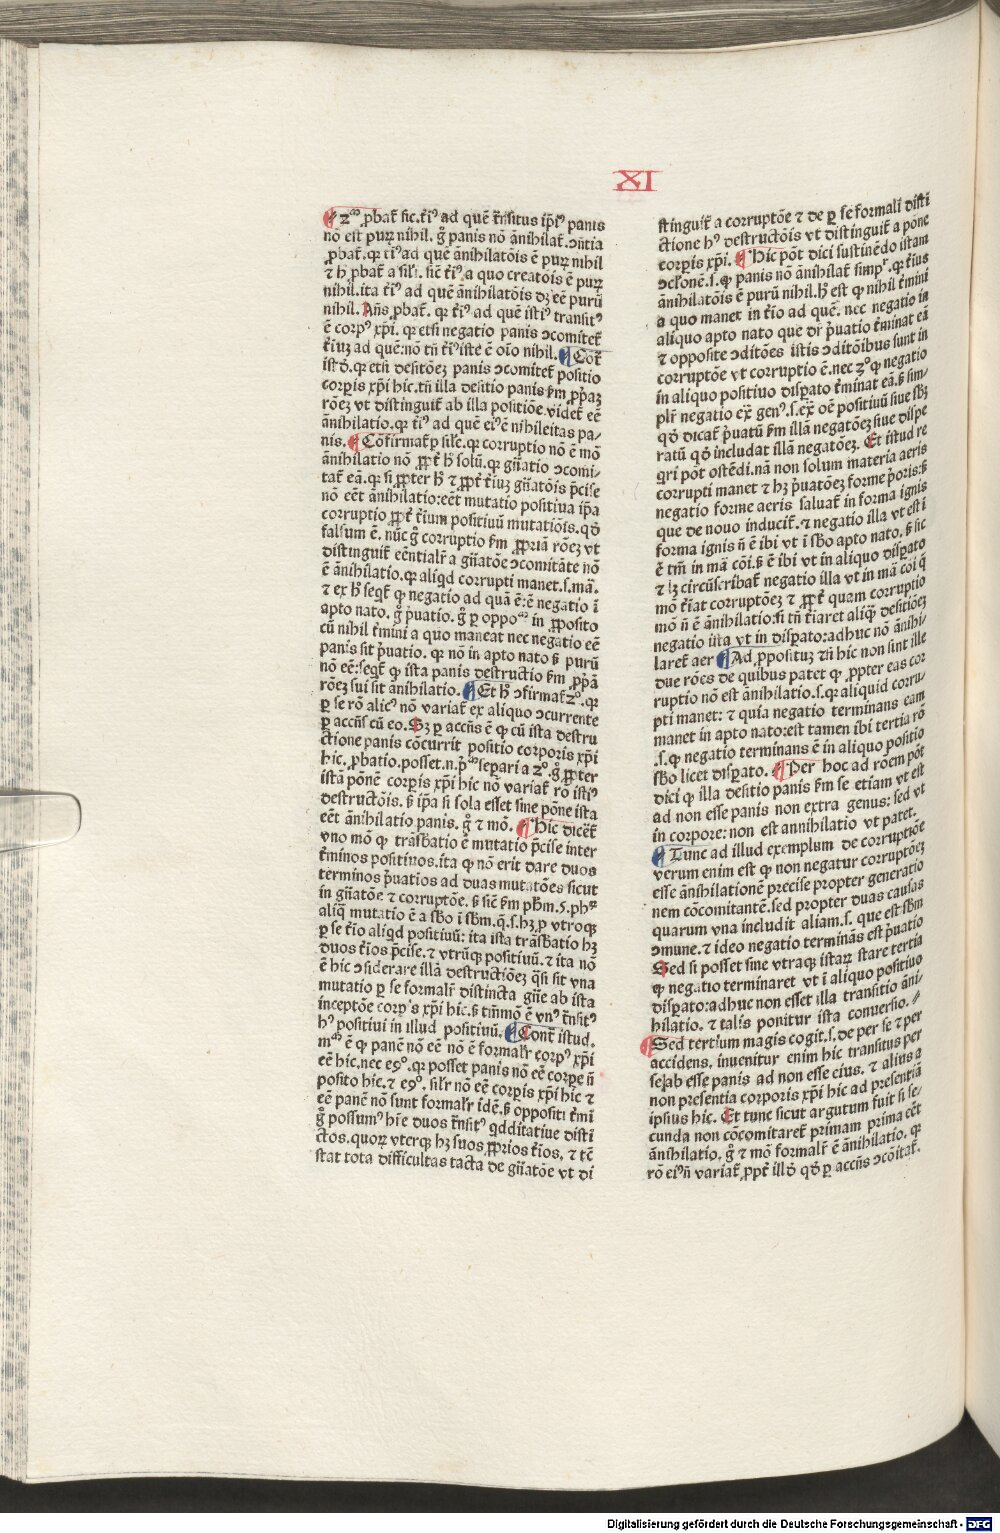 XI
¶ 2ᵐ ꝓbat̃ sic. t̃iꝰ ad quē t̃nsitus ip̃iꝰ panis
nō est puꝝ nihil. g̊ panis nō ānihilat̃. ↄn̄tia
ꝓbat̃. qꝛ t̃iꝰ ad quē ānihilatōis ē puꝝ nihil
⁊ h̄ ꝓbat̃ a sil̓i. sic̄ t̃iꝰ a quo creatōis ē puꝝ
nihil. ita t̃iꝰ ad quē ānihilatōis dꝫ eē purū
nihil. Añs ꝓbat̃. qꝛ t̃iꝰ ad quē istiꝰ transitꝰ
ē corpꝰ xp̄i. qꝛ etsi negatio panis ↄcomitet̃
t̃iuꝫ ad quē: nō tñ t̃iꝰ iste ē oīo nihil. ¶ Cōt̃
istđ. qꝛ etñ desitōeꝫ panis ↄcomitet̃ positio
corꝑis xp̄i hic. tñ illa desitio panis ẜm ꝓpꝛiaꝫ
rōeꝫ vt distinguit̃ ab illa positiōe. videt̃ eē
ānihilatio. qꝛ t̃iꝰ ad quē eiꝰ ē nihileitas pa⸗
nis. ¶ Cōfirmat̃ ꝑ sil̓e. qꝛ corruptio nō ē mō
ānihilatio nō ꝓpt̃ h̄ solū. qꝛ gñatio ↄcomi⸗
tat̃ eā. qꝛ si ꝓpter h̄ ⁊ ꝓpt̃ t̃iuꝫ gñatōis p̄cise
nō eēt ānihilatio: eēt mutatio positiua ip̄a
corruptio ꝓpt̃ t̃ium positiuū mutatiōis. qđ
falsum ē. nūc g̊ corruptio ẜm ꝓpriā rōeꝫ vt
distinguit̃ eēntialr̃ a gñatōe ↄcomitāte nō
ē ānihilatio. qꝛ aliqd corrupti manet. s. mā.
⁊ ex h̄ seqt̃ ꝙ negatio ad quā ē: ē negatio ī
apto nato. g̊ p̄uatio. g̊ ꝑ oppoᵐ in ꝓposito
cū nihil t̃mini a quo maneat nec negatio eē
panis sit p̄uatio. qꝛ nō in apto nato ẜ purū
nō eē: seqt̃ ꝙ ista panis destructio ẜm ꝓpā
rōeꝫ sui sit anihilatio. ¶ Et h̄ ↄfirmat̃ 2°. qꝛ
ꝑ se rō alicꝰ nō variat̃ ex aliquo ↄcurrente
ꝑ accñs cū eo. Sꝫ ꝑ accñs ē ꝙ cū ista destru
ctione panis cōcurrit positio corporis xp̄i
hic. ꝓbatio. posset .n. p̄ᵐ separi a 2°. g̊ ꝓpter
istā pōnē corꝑis xp̄i hic nō variat̃ rō istiꝰ
destructōis. ẜ ip̄a si sola esset sine pōne ista
eēt ānihilatio panis. g̊ ⁊ mō. ¶ Hic dicet̃
vno mō ꝙ trāsb̃atio ē mutatio p̄cise inter
t̃minos positiuos. ita ꝙ nō erit dare duos
terminos p̄uatios ad duas mutatōes sicut
in gñatōe ⁊ corruptōe. ẜ sic̄ ẜm pħm. 5. phᵒ
aliq̄ mutatio ē a sb̄o ī sb̄m. q̄. s. hꝫ ꝓ vtroqꝫ
ꝑ se t̃io aliqd positiuū: ita ista trāsb̃atio hꝫ
duos t̃ios p̄cise. ⁊ vtrūqꝫ positiuū. ⁊ ita nō
ē hic ↄsiderare illā destructiōeꝫ q̄si sit vna
mutatio ꝑ se formalr̃ distincta gñe ab ista
inceptōe corꝑis xp̄i hic. ẜ tm̄mō ē vnꝰ t̃nsitꝰ
hꝰ positiui in illud positiuū. ¶ Cont̃ istud.
mᵐ ē ꝙ panē nō eē nō ē formalr̃ corpꝰ xp̄i
eē hic. nec eꝯ°. qꝛ posset panis nō eē corꝑe ñ
posito hic. ⁊ eꝯ°. silr̃ nō eē corꝑis xp̄i hic ⁊
eē panē nō sunt formalr̃ idē. ẜ oppositi t̃mi
g̊ possumꝰ hr̃e duos t̃nsitꝰ qdditatiue disti
ctos. quoꝝ vterqꝫ hꝫ suos ꝓprios t̃ios. ⁊ tc̄
stat tota difficultas tacta de gñatōe vt di
stinguit̃ a corruptōe ⁊ de ꝑ se formali disti
ctione hꝰ destructōis vt distinguit̃ a pōne
corꝑis xp̄i. ¶ Hic pōt dici sustinēdo istam
ↄclꝰonē. s. ꝙ panis nō ānihilat̃ simpʳ. qꝛ t̃ius
ānihilatōis ē purū nihil. h̄ est ꝙ nihil t̃mini
a quo manet in t̃io ad quē. nec negatio in
aliquo apto nato que dr̄ p̄uatio t̃minat eā
⁊ opposite ↄditōes istis ↄditōibus sunt in
corruptōe vt corruptio ē. nec 2° ꝙ negatio
in aliquo positiuo disꝑato t̃minat eā. ẜ sim⸗
plr̃ negatio ex̄ genꝰ. s. ex̄ oē positiuū siue sb̄ꝫ
qđ dicat̃ p̄uatū ẜm illā negatōeꝫ siue dispe
ratū qđ includat illā negatōeꝫ. Et istud re
qri pōt ostēdi. nā non solum materia aeris
corrupti manet ⁊ hꝫ p̄uatōeꝫ forme p̄oris: ẜ
negatio forme aeris saluat̃ in forma ignis
que de nouo inducit̃. ⁊ negatio illa vt est ī
forma ignis ñ ē ibi vt ī sb̄o apto nato, ẜ sic
ē tm̄ in mā cōi. ẜ ē ibi vt in aliquo disꝑato
⁊ lꝫ circūscribat̃ negatio illa vt in mā cōi q̄
mō t̃iat corruptōeꝫ ⁊ ꝓpt̃ quam corruptio
mō ñ ē ānihilatio: si tñ t̃iaret aliq̄ desitiōeꝫ
negatio ista vt in disꝑato: adhuc nō ānihi⸗
laret̃ aer ¶ Ad ꝓpositū tñ hic non sint ille
due rōes de quibus patet ꝙ ꝓpter eas cor
ruptio nō est ānihilatio. s. qꝛ aliquid corru⸗
pti manet: ⁊ quia negatio terminans eam
manet in apto nato: est tamen ibi tertia rō
.s. ꝙ negatio terminans ē in aliquo positio
sb̄o licet disꝑato. ¶ Per hoc ad rōem pōt
dici ꝙ illa desitio panis ẜm se etiam vt est
ad non esse panis non extra genus: sed vt
in corpore: non est annihilatio vt patet.
¶ Tunc ad illud exemplum de corruptiōe
verum enim est ꝙ non negatur corruptōeꝫ
esse ānihilationē precise propter generatio
nem cōcomitantē. sed propter duas causas
quarum vna includit aliam. s. que est sb̄m
ↄmune. ⁊ ideo negatio terminās est p̄uatio
Sed si posset sine vtraqꝫ istaꝝ stare tertia
ꝙ negatio terminaret vt ī aliquo positiuo
disꝑato: adhuc non esset illa transitio āni⸗
hilatio. ⁊ talis ponitur ista conuersio. ⸗
¶ Sed tertium magis cogit. s. de per se ⁊ per
accidens, inuenitur enim hic transitus per
se ab esse panis ad non esse eius. ⁊ alius a
non presentia corporis xp̄i hic ad presentiā
ipsius hic. Et tunc sicut argutum fuit si se⸗
cunda non cōcomitaret̃ primam prima eēt
ānihilatio. g̊ ⁊ mō formalr̃ ē ānihilatio. qꝛ
rō eiꝰ ñ variat̃ ꝓpt̃ illđ qđ ꝑ accñs ↄcōitat̃.
Digitalisierung gefördert durch die Deutsche Forschungsgemeinschaft - DFG